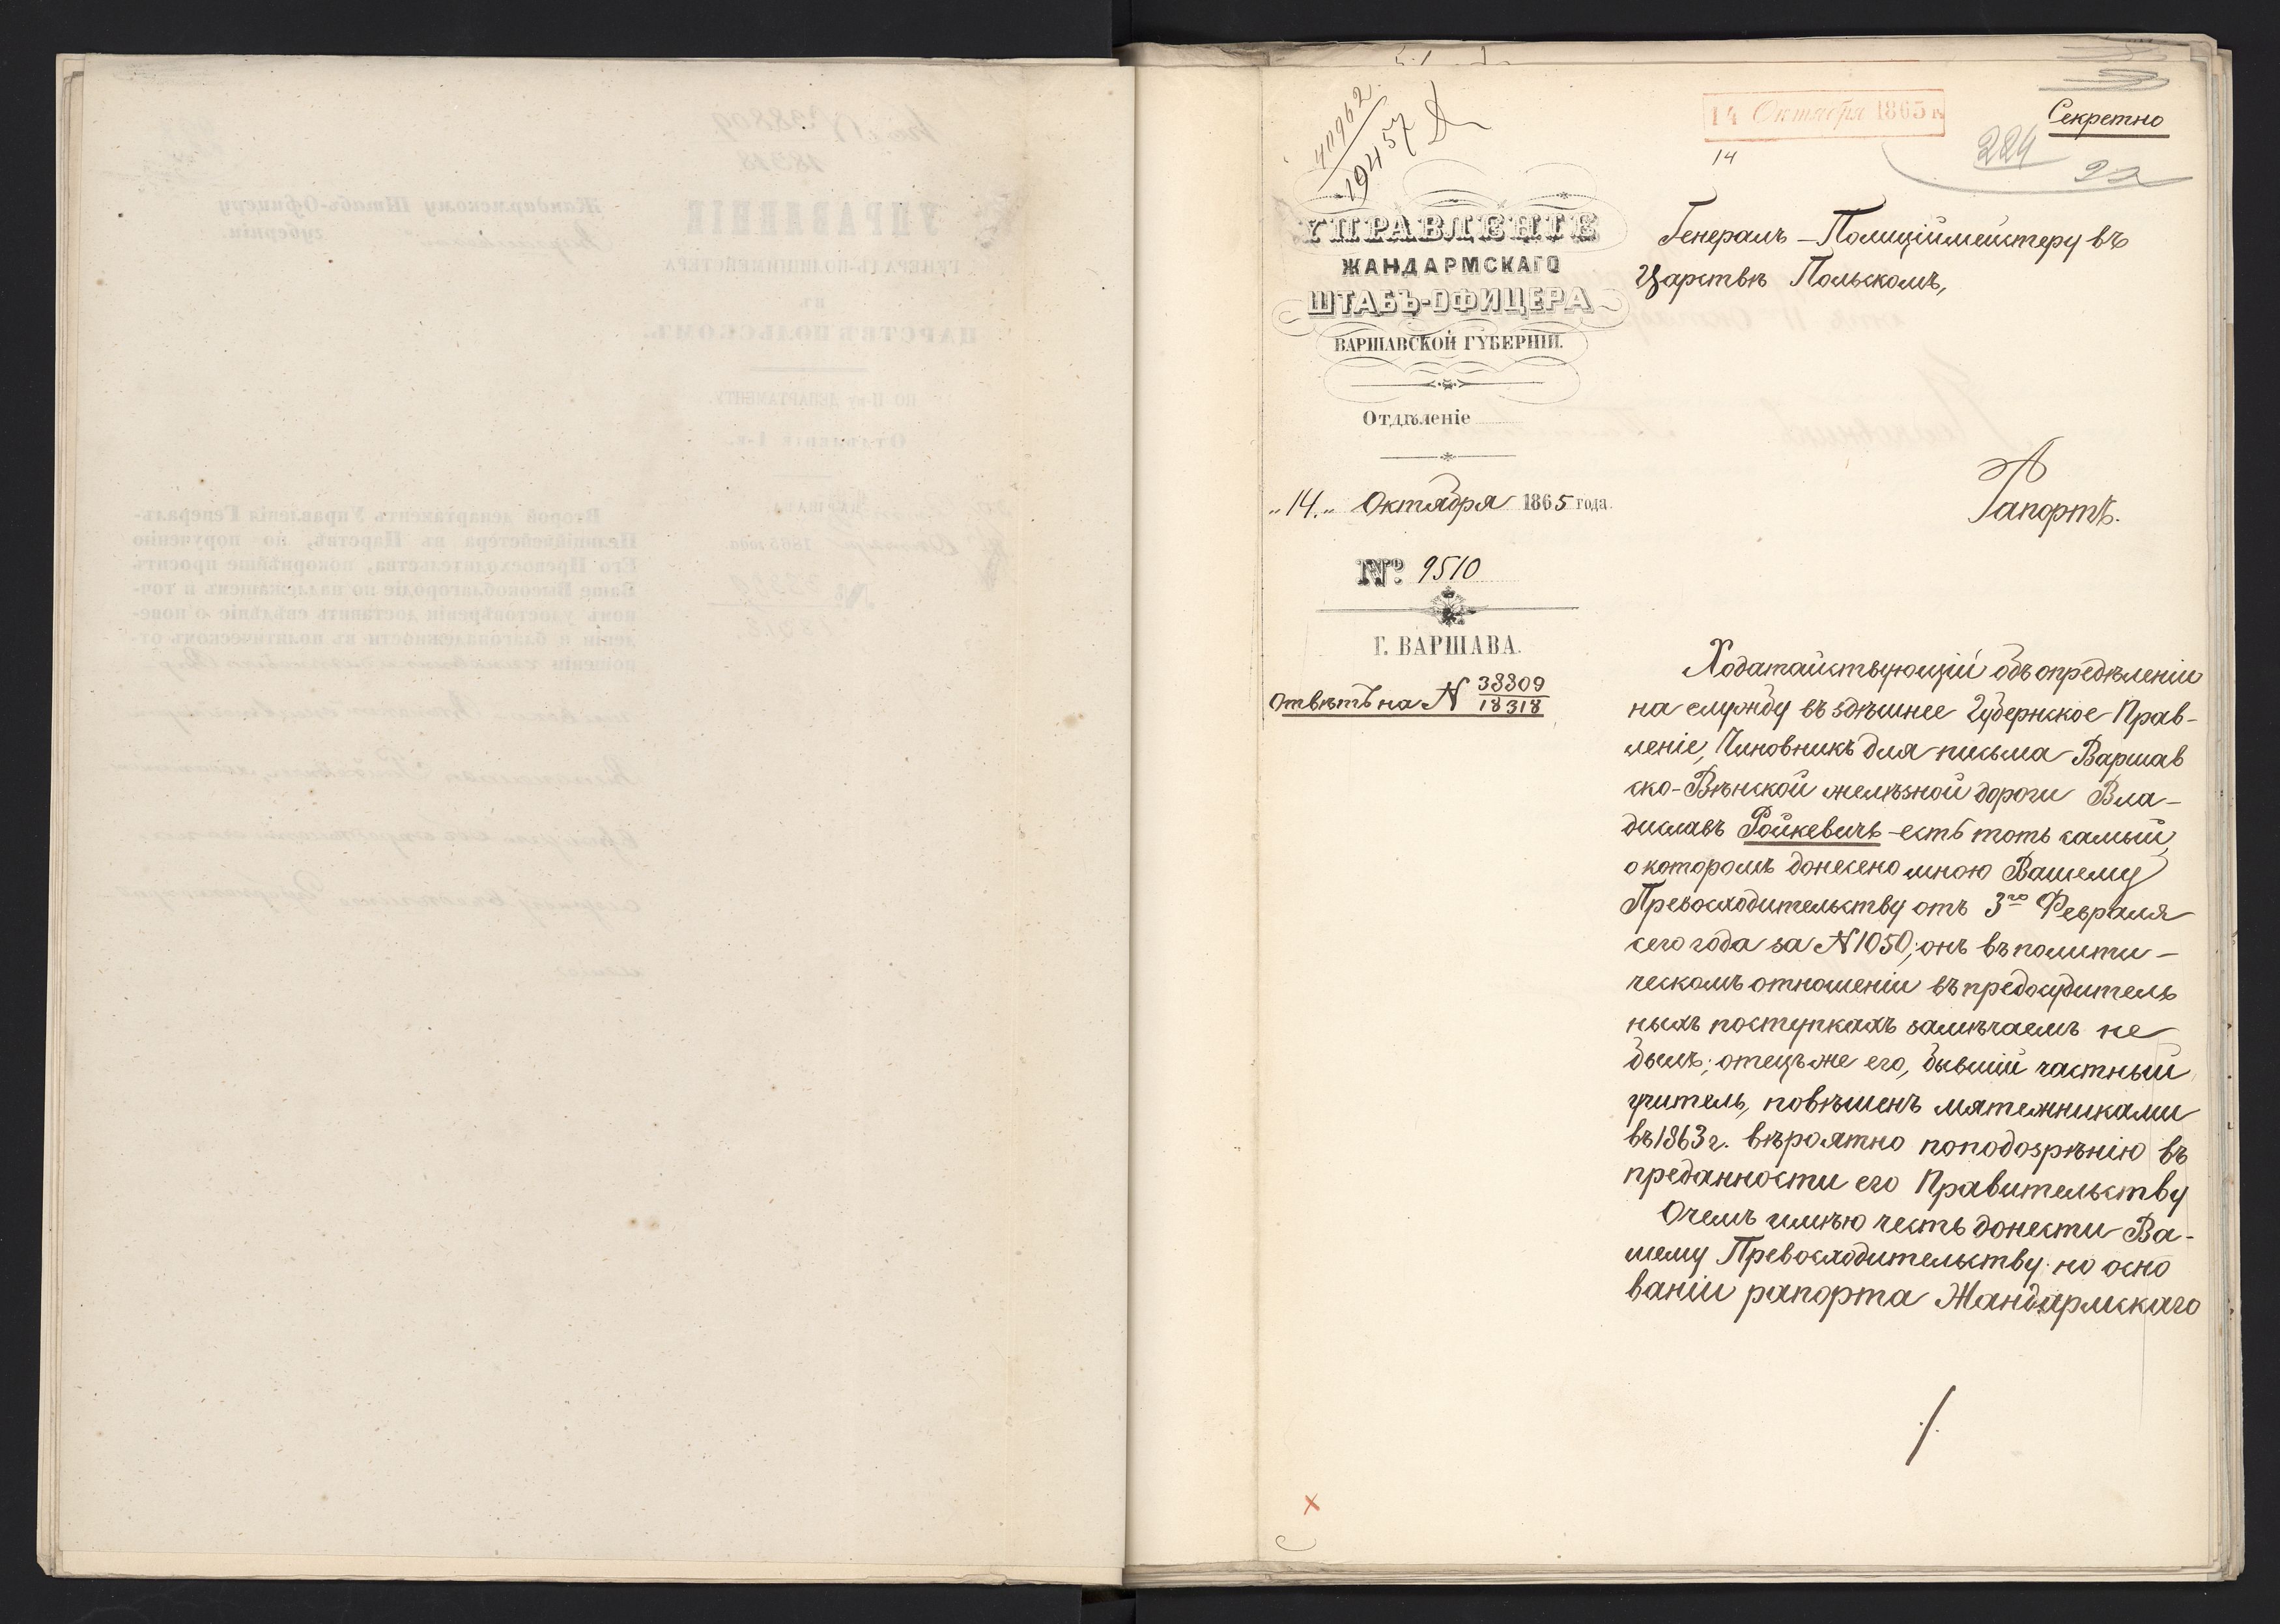 41962
19457
14 Октября 1865 г.
14
Секретно
224
22
УПРАВЛЕНІЕ
ЖАНДАРМСКАГО
ШТАБЪ-ОФИЦЕРА
ВАРШАВСКОЙ ГУБЕРНІИ.
Отдѣленіе
„14„ Октября 1865 года.
№ 9510
Г. ВАРШАВА.
Отвѣтъ на № 38809
18318
Генералъ-Полиціймейстеру въ
Царствѣ Польскомъ,
Рапортъ.
Ходатайствующій объ опредѣленіи
на службу въ здѣшнее Губернское Прав-
леніе, Чиновникъ для письма Варшав
ско-Вѣнской желѣзной дороги Вла-
диславъ Ройкевичъ-есть тотъ самый,
о которомъ донесено мною Вашему
Превосходительству отъ 3го Февраля
сего года за № 1050; онъ въ полити-
ческомъ отношеніи въ предосудитель
ныхъ поступкахъ замѣчаемъ не
былъ; отецъ же его, бывшій частный
учитель, повѣшенъ мятежниками
въ 1863 г. вѣроятно по подозрѣнію въ
преданности его Правительству
О чемъ имѣю честь донести Ва-
шему Превосходительству на осно
ваніи рапорта Жандармскаго
./.